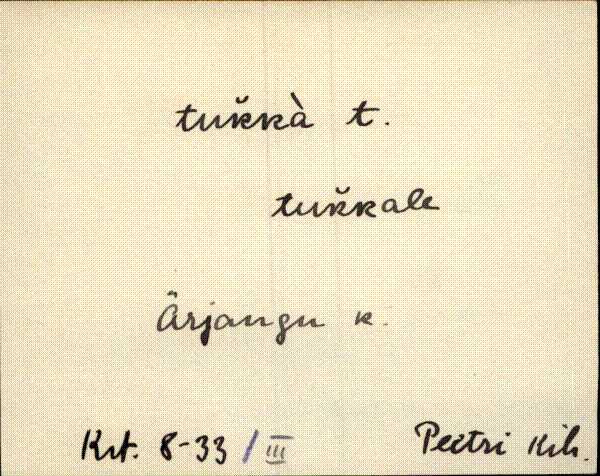 tuk̆kà t.
tuk̆kale
Ärjangu k.
Krt. 8-33 / III
Peetri kih.